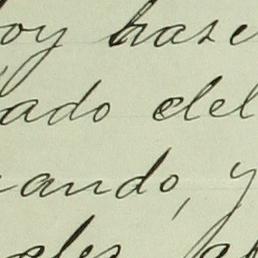 oy hase
ado del
ando, y